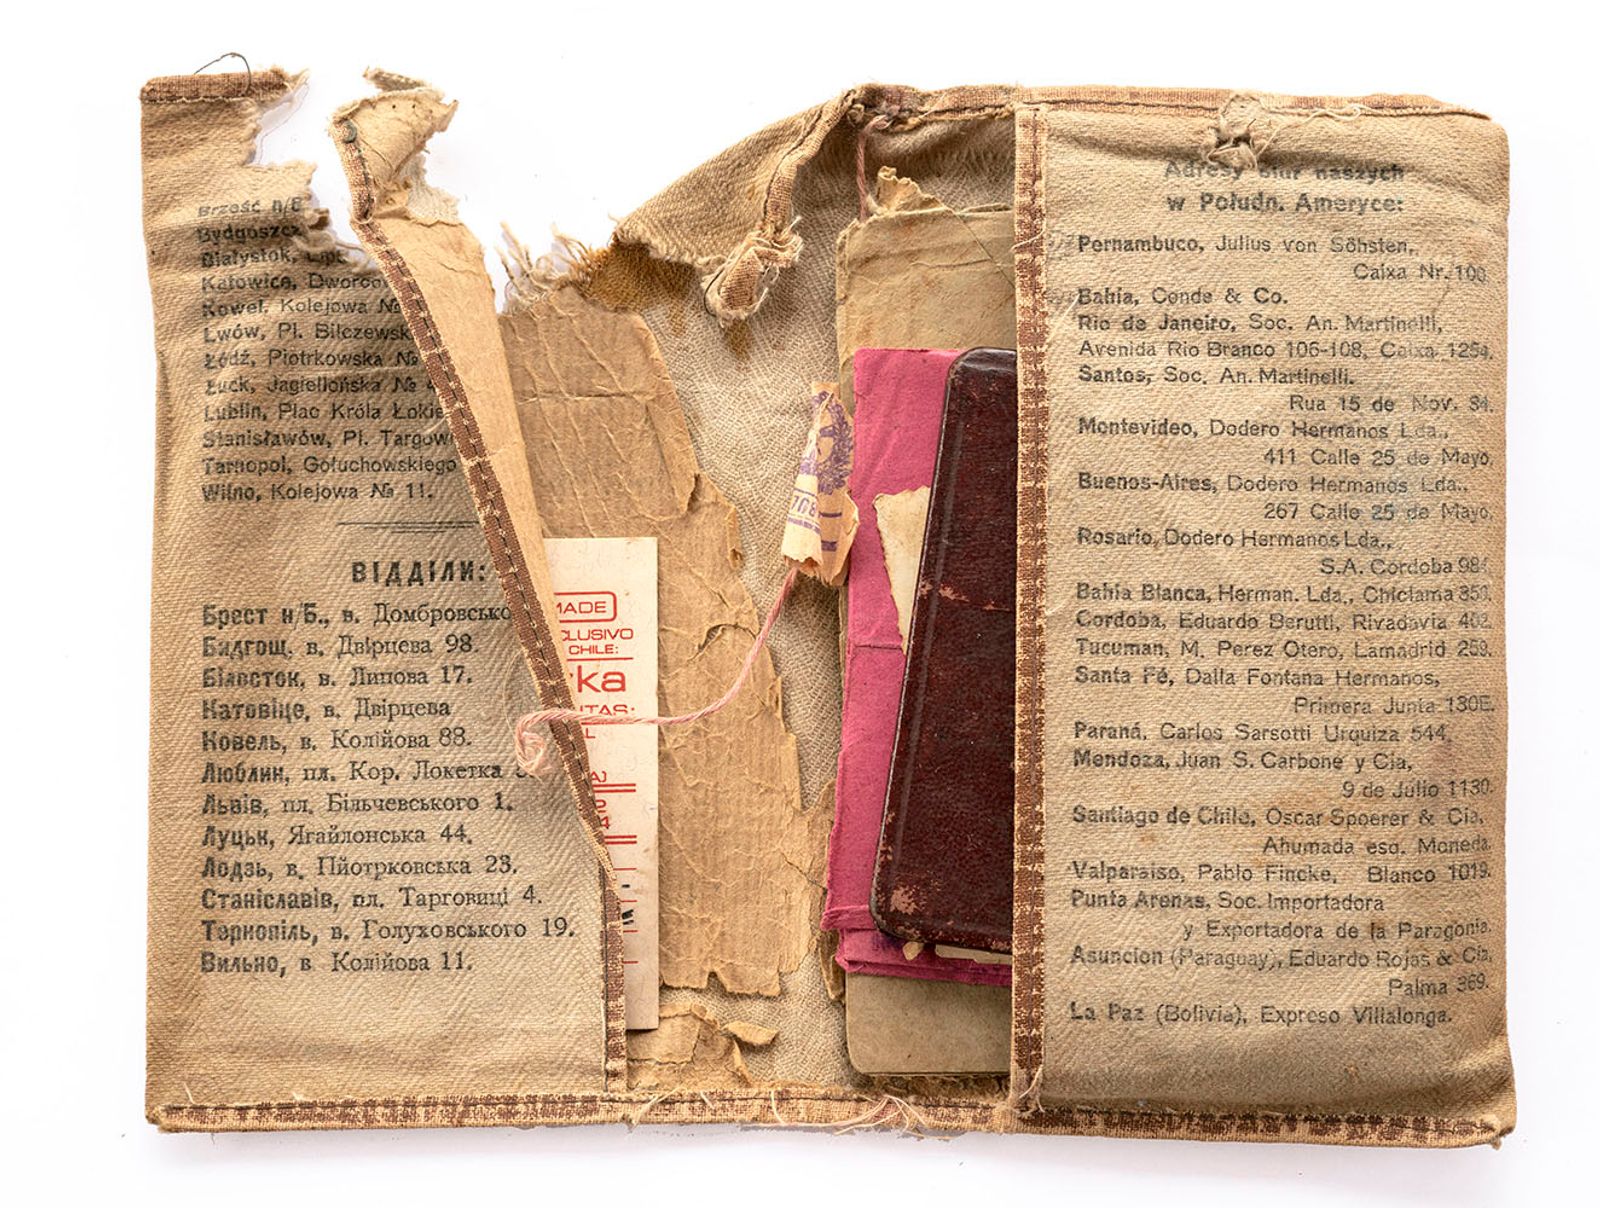 Brześć n/B
Bydgoszcz
Białystok, Lip
Katowice, Dworco
Kowel, Kolejowa №
Lwów, Pl. Bilczewsk
Łódź, Piotrkowska №
Łuck, Jagiellońska № 4
Lublin, Plac Króla Łokie
Stanisławów, Pl. Targow
Tarnopol, Gołuchowskiego
Wilno, Kolejowa № 11.
ВІДДІЛИ:
Брест н/Б., в. Домбровсько
Бидгощ, в. Двірцева 98.
Білосток, в. Липова 17.
Катовіце, в. Двірцева
Ковель, в. Колійова 88.
Люблин, пл. Кор. Локетка
Львів, пл. Більчевського 1.
Луцьк, Ягайлонська 44.
Лодзь, в. Пйотрковська 23.
Станіславів, пл. Тарговиці 4.
Тернопіль, в. Голуховського 19.
Вильно, в Колійова 11.
MADE
CLUSIVO
CHILE:
ka
NTAS:
L
AJ
4
708
Adresy biur naszych
w Połudn. Ameryce:
Pernambuco, Julius von Söhsten,
Caixa Nr. 108.
Bahia, Conde & Co.
Rio de Janeiro, Soc. An. Martinelli,
Avenida Rio Branco 106-108, Caixa 1254.
Santos, Soc. An. Martinelli.
Rua 15 de Nov. 34.
Montevideo, Dodero Hermanos Lda.,
411 Calle 25 de Mayo.
Buenos-Aires, Dodero Hermanos Lda.,
267 Calle 25 de Mayo.
Rosario, Dodero Hermanos Lda.,
S.A. Cordoba 984.
Bahia Blanca, Herman. Lda., Chiclama 350.
Cordoba, Eduardo Berutti, Rivadavia 402.
Tucuman, M. Perez Otero, Lamadrid 259.
Santa Fé, Dalla Fontana Hermanos,
Primera Junta 130E.
Paraná, Carlos Sarsotti Urquiza 544.
Mendoza, Juan S. Carbone y Cia,
9 de Julio 1130.
Santiago de Chile, Oscar Spoerer & Cia,
Ahumada esq. Moneda.
Valparaiso, Pablo Fincke, Blanco 1019.
Punta Arenas, Soc. Importadora
y Exportadora de la Paragonia.
Asuncion (Paraguay), Eduardo Rojas & Cia,
Palma 369.
La Paz (Bolivia), Expreso Villalonga.